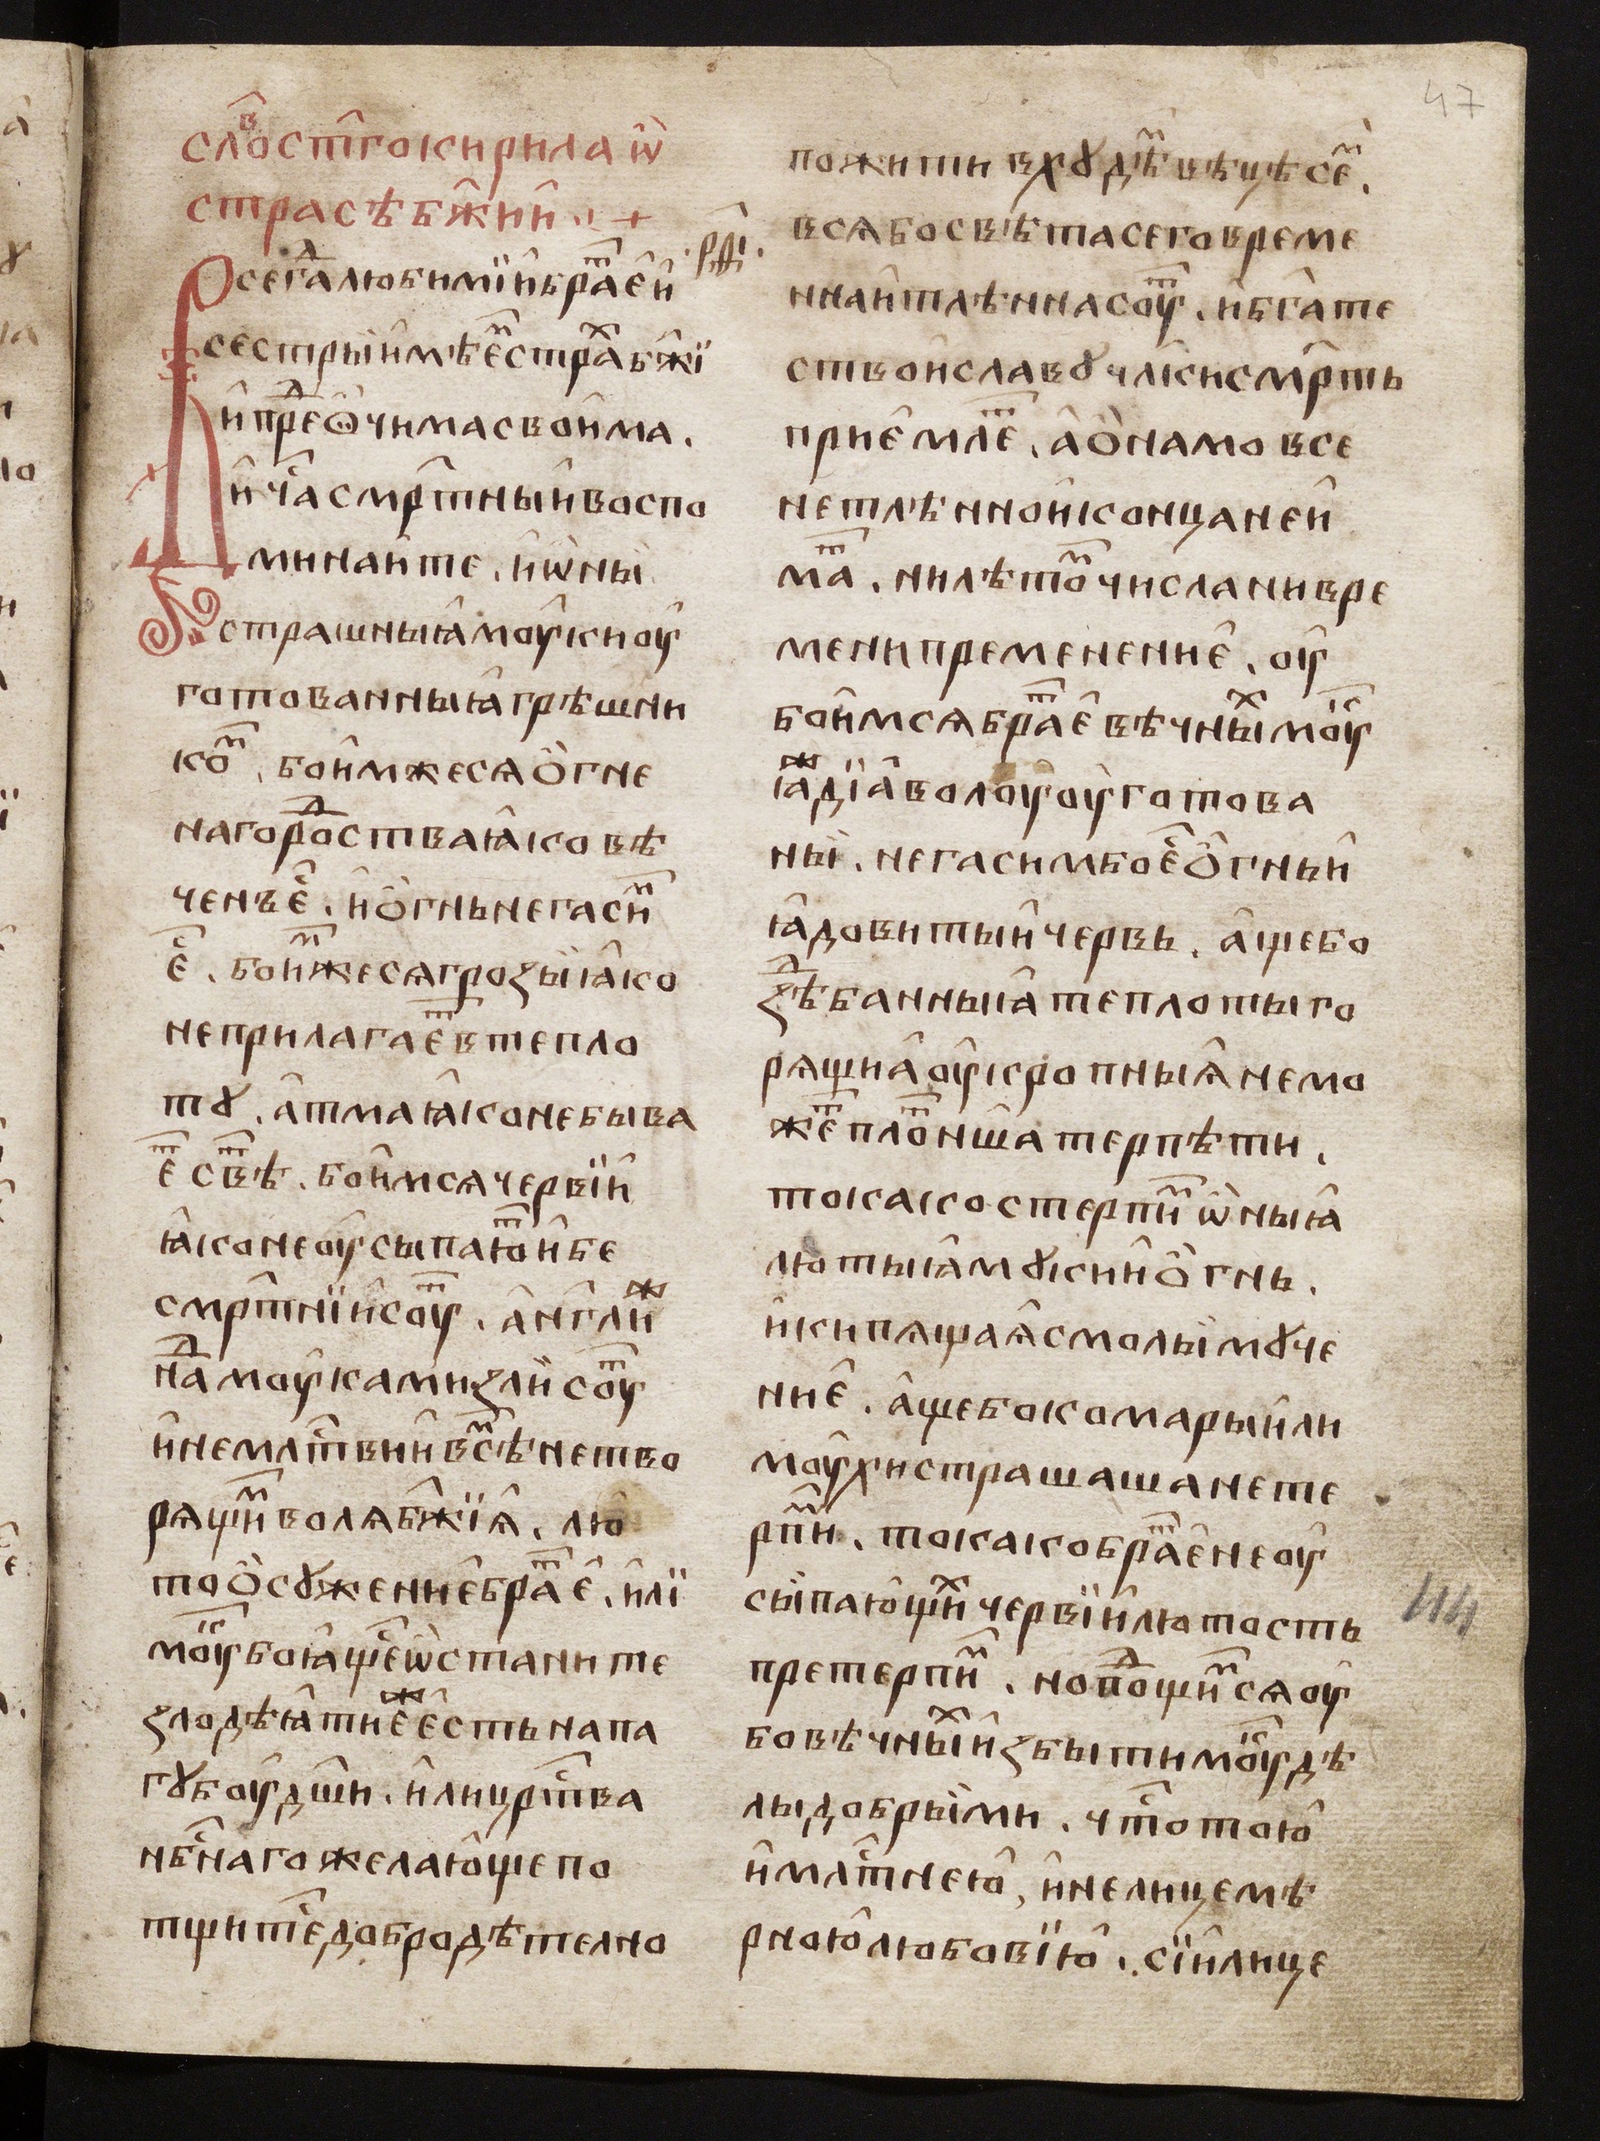 47
сло҇вст҃гокирилаѡ҆
страсѣбж҃ии҆
рпі
осегдⷶалюбимїи҆братⷶе҆и҆
сестрыи҆мѣе҆ⷨстрахⷶбж҃ї
и҆прⷣео҆чимасвои҆ма.
и҆чⷭасмр҃тныи҆воспо
минаи҆те. и҆ѡ҆ны
страшныꙗ҆моу҆киоу҆
готованныꙗ҆грѣшни
коⷨ. бои҆мжесяо҆гне
нагороⷣстваꙗ҆ковѣ
ченъе҆ⷭ. и҆о҆гньнегасиⷨ
е҆ⷭ. боиⷨжесягрозыꙗ҆ко
неприлагае҆ⷮвтепло
тꙋ. а҆тмаꙗ҆конебыва
е҆ⷮсвѣⷮ. бои҆мсячервїи҆
ꙗ҆конеоу҆сыпаю҆ⷮи҆бе
смр҃тнїи҆соуⷮ. а҆нг҃лиⷤ
наⷣмоу҆камизлии҆соуⷮ
и҆немлⷭ҇твии҆всѣⷨнетво
рящиⷨволябж҃їя҆. лю
тоо҆сꙋжение҆братⷶе҆. и҆лї
моукⷭбоꙗ҆щеⷭѡ҆станите
злодѣꙗ҆тие҆ⷤе҆стьнапа
гꙋбоу҆дш҃и. и҆лицрⷭ҇тва
нбⷭ҇нагожелаю҆щепо
тщитеⷭдобродѣтелно
пожитивхꙋдѣⷨвѣцѣсеⷨ.
всябосвѣтасеговреме
ннаи҆тлѣннасоуⷮ. и҆бг҃ате
ствои҆славꙋчл҃кисмр҃ть
прие҆млеⷮ. а҆о҆намовсе
нетлѣннои҆концанеи҆
маⷮ. нилѣтоⷨчисланивре
менипременение҆. оу҆
бои҆мсябратⷶе҆вѣчныхмоукⷭ
ꙗ҆ⷤдїа҆волоу҆оу҆готова
ны. негасимбое҆ⷭо҆гныи҆
ꙗ҆довитыи҆червь. а҆щебо
зⷣѣбанныꙗ҆теплотыго
рящиа҆оу҆кропныя҆немо
жеⷮплотⷮнашатерпѣти.
токакостерпиⷨѡ҆ныꙗ҆
лютыꙗ҆мꙋкии҆о҆гнь.
и҆кипящая҆смолымꙋче
ние҆. а҆щебокомарыи҆ли
моу҆хистрашашанете
рпиⷨ. токакобратⷶе҆неоу҆
сыпаю҆щиⷯчервїи҆лютость
претерпиⷨ. нопоⷣщиⷨсяоу҆
бовѣчныхи҆збытимоукⷭдѣ
лыдобрыми. чⷭ҇тотою҆
и҆млⷭ҇тнею҆, и҆нелицемѣ
рною҆любовїю҆. сїи҆лице
44